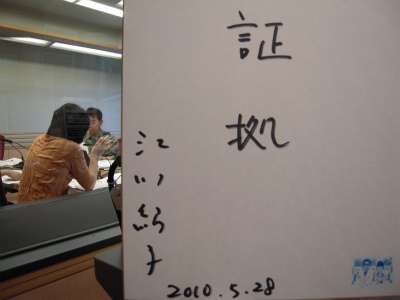 証拠
江川紹子
2010.5.28